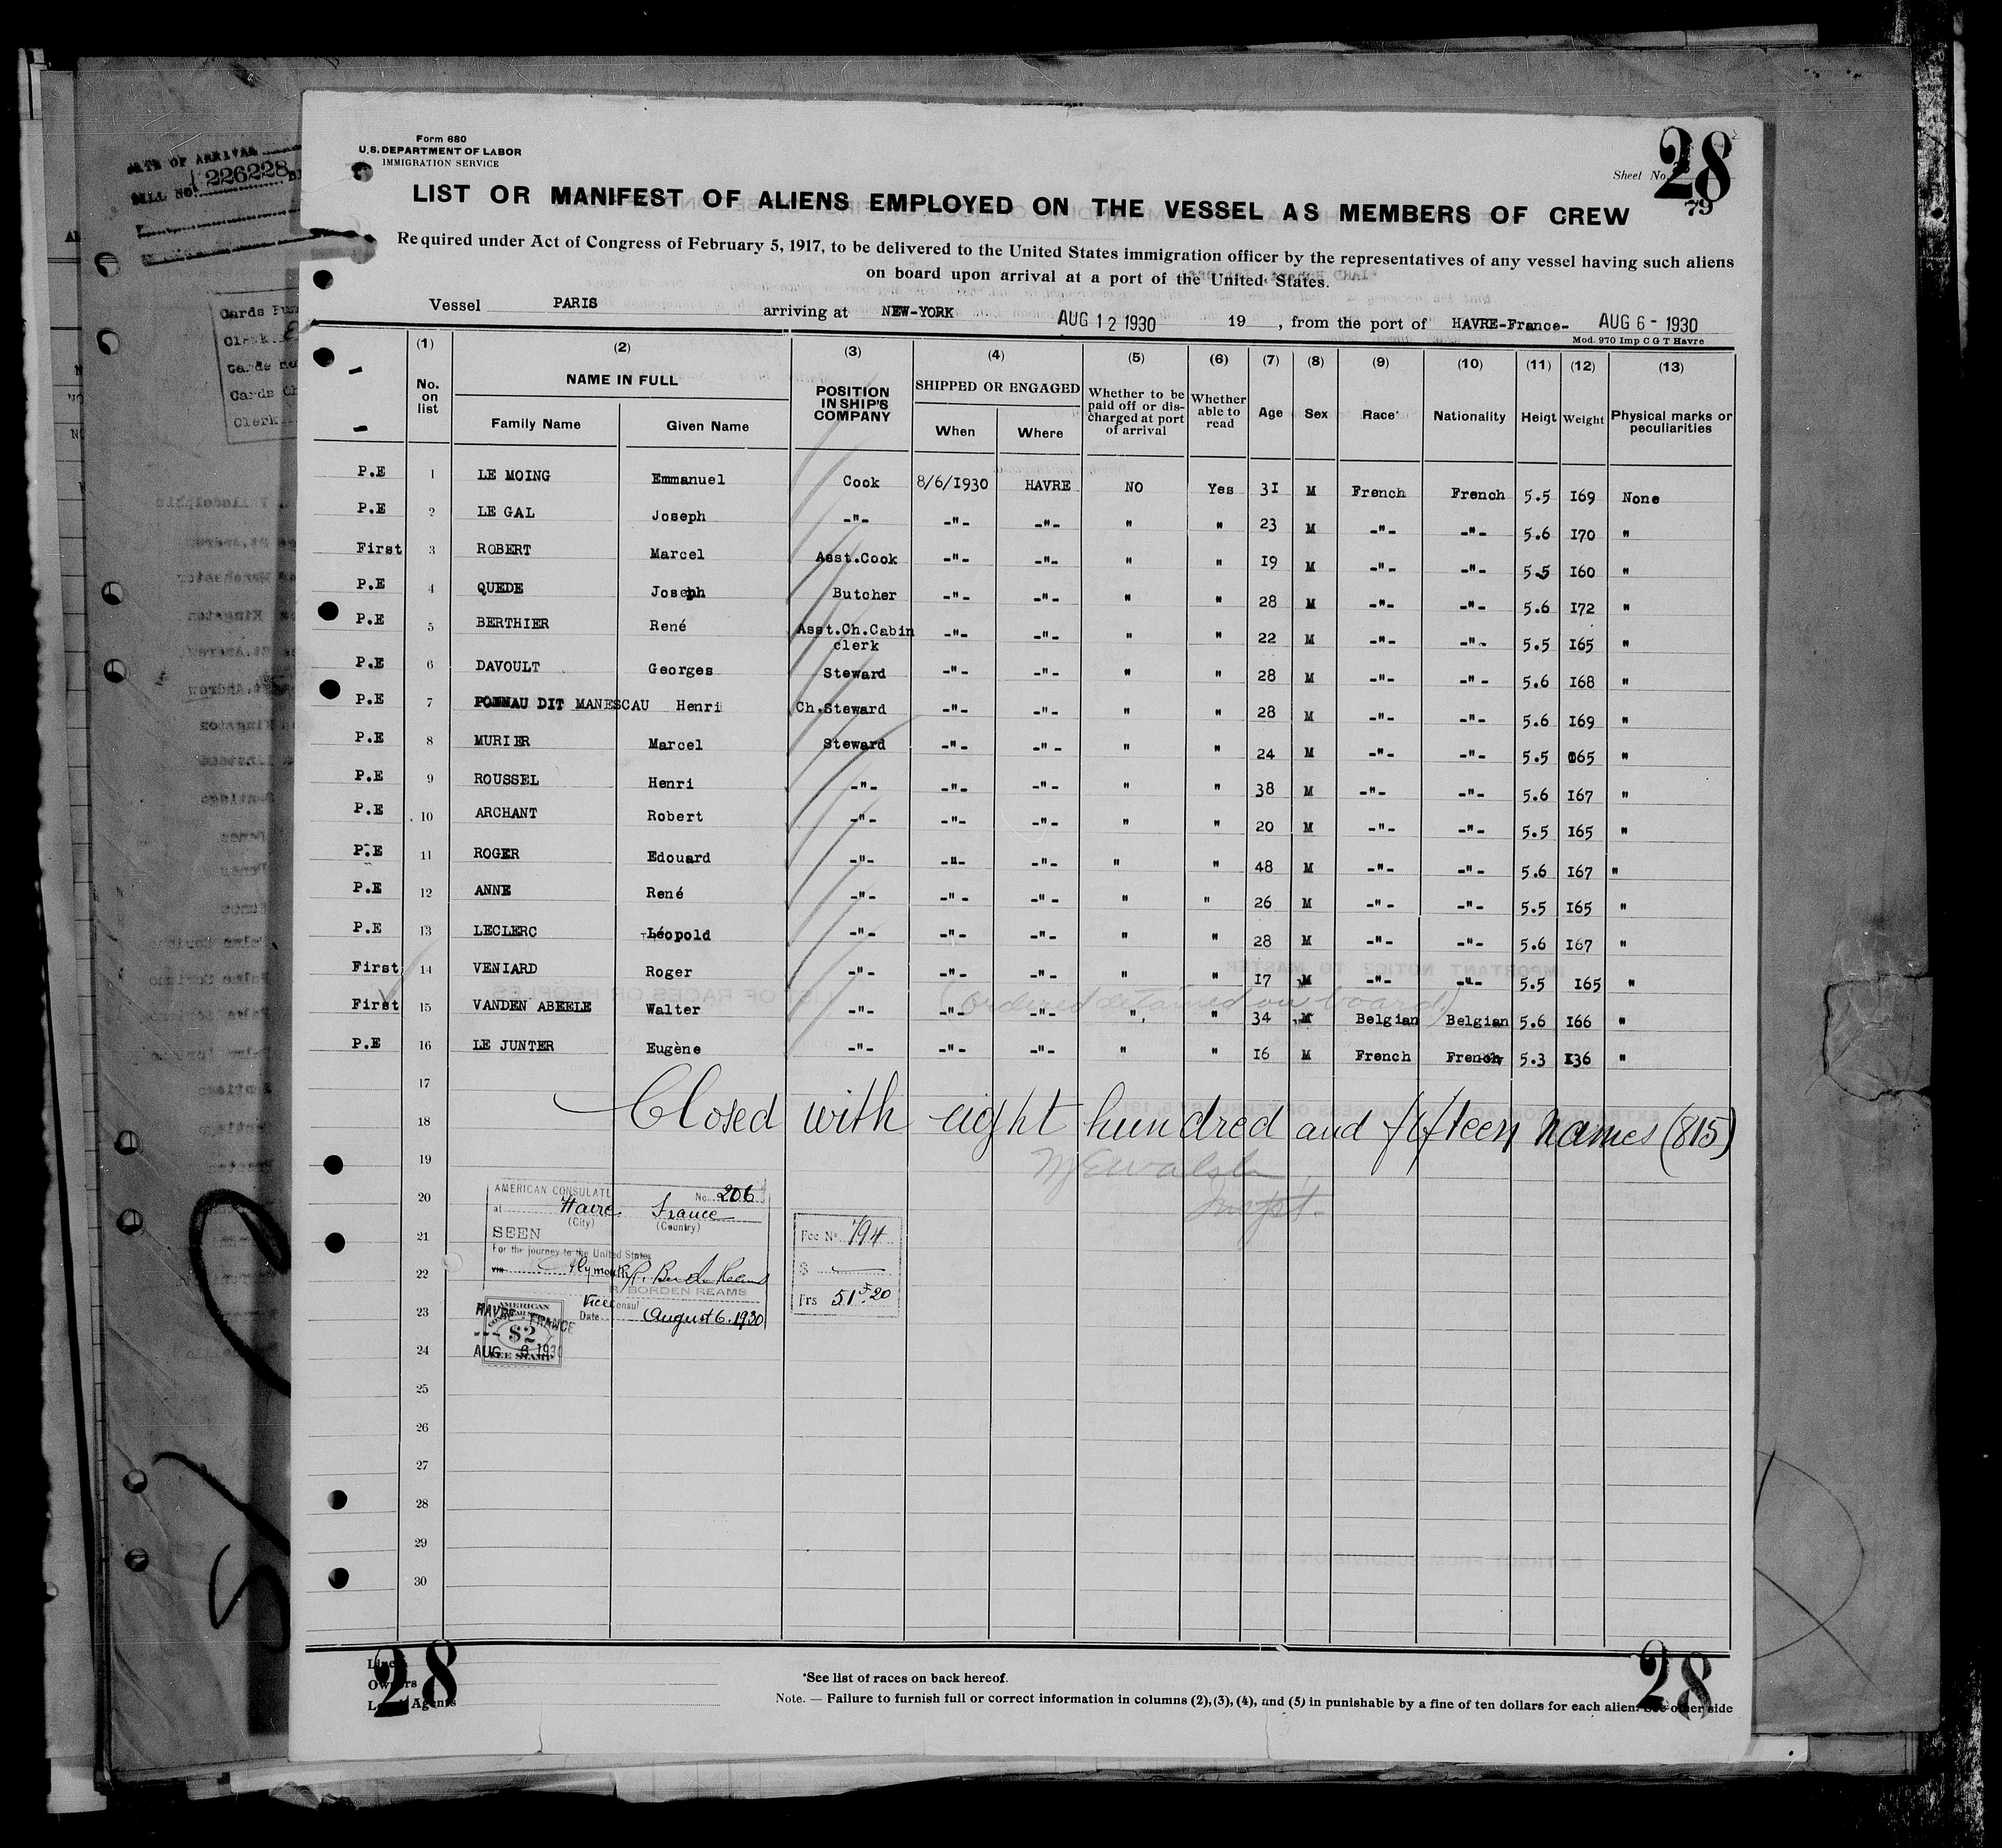 Form 680
U.S. DEPARTMENT OF LABOR
IMMIGRATION SERVICE
Sheet No. 28
79
DATE OF ARRIVAL
226228
LIST OR MANIFEST OF ALIENS EMPLOYED ON THE VESSEL AS MEMBERS OF CREW
Required under Act of Congress of February 5, 1917, to be delivered to the United States immigration officer by the representatives of any vessel having such aliens
on board upon arrival at a port of the United States.
Vessel PARIS arriving at NEW-YORK AUG 12 1930 19 , from the port of HAVRE-France- AUG 6 - 1930
Mod. 970 Imp C G T Havre
(1) (2) (3) (4) (5) (6) (7) (8) (9) (10) (11) (12) (13)
No. on list NAME IN FULL Family Name Given Name POSITION IN SHIP'S COMPANY SHIPPED OR ENGAGED When Where Whether to be paid off or discharged at port of arrival Whether able to read Age Sex Race* Nationality Heigt Weight Physical marks or peculiarities
P.E 1 LE MOING Emmanuel Cook 8/6/1930 HAVRE NO Yes 31 M French French 5.5 169 None
P.E 2 LE GAL Joseph -"- -"- -"- " " 23 M -"- -"- 5.6 170 "
First 3 ROBERT Marcel Asst.Cook -"- -"- " " 19 M -"- -"- 5.5 160 "
P.E 4 QUEDE Joseph Butcher -"- -"- " " 28 M -"- -"- 5.6 172 "
P.E 5 BERTHIER René Asst.Ch.Cabin clerk -"- -"- " " 22 M -"- -"- 5.5 165 "
P.E 6 DAVOULT Georges Steward -"- -"- " " 28 M -"- -"- 5.6 168 "
P.E 7 PONNAU DIT MANESCAU Henri Ch.Steward -"- -"- " " 28 M -"- -"- 5.6 169 "
P.E 8 MURIER Marcel Steward -"- -"- " " 24 M -"- -"- 5.5 165 "
P.E 9 ROUSSEL Henri -"- -"- -"- " " 38 M -"- -"- 5.6 167 "
P.E 10 ARCHANT Robert -"- -"- -"- " " 20 M -"- -"- 5.5 165 "
P.E 11 ROGER Edouard -"- -"- -"- " " 48 M -"- -"- 5.6 167 "
P.E 12 ANNE René -"- -"- -"- " " 26 M -"- -"- 5.5 165 "
P.E 13 LECLERC Léopold -"- -"- -"- " " 28 M -"- -"- 5.6 167 "
First 14 VENIARD Roger -"- -"- -"- " " 17 M -"- -"- 5.5 165 "
(Ordered detained on board)
First 15 VANDEN ABEELE Walter -"- -"- -"- " " 34 M Belgian Belgian 5.6 166 "
P.E 16 LE JUNTER Eugène -"- -"- -"- " " 16 M French French 5.3 136 "
17
18 Closed with eight hundred and fifteen names (815)
19 Walsh
20 Inspt.
21
22
23
24
25
26
27
28
29
30
AMERICAN CONSULATE No. 206
at Havre France
(City) (Country)
SEEN
For the journey to the United States
via Plymouth R. Borden Reams
R/BORDEN REAMS
Vice Consul
Date August 6. 1930
Fee No 794
$
Frs 51F.20
AMERICAN
HAVRE FRANCE
$2
AUG 6 1930
FEE STAMP
Line
Owners
Local Agents
28
28
*See list of races on back hereof.
Note. — Failure to furnish full or correct information in columns (2), (3), (4), and (5) in punishable by a fine of ten dollars for each alien. See other side